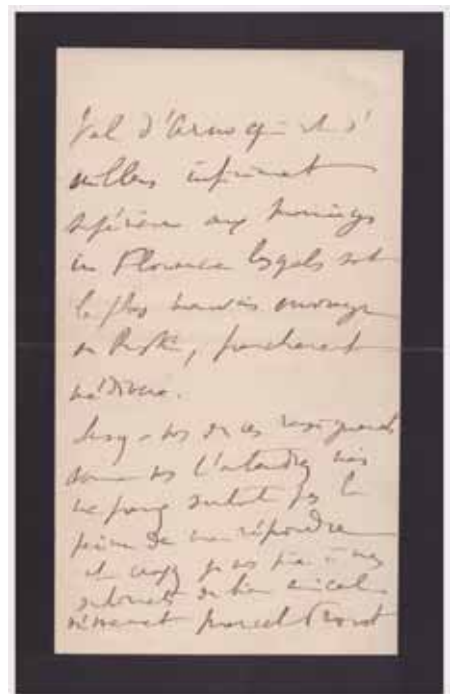 Val d'Arno qui est d'
ailleurs infiniment
supérieur aux Mornings
in Florence lesquels sont
le plus mauvais ouvrage
de Ruskin, franchement
médiocre.
de ces renseignements
ne prenez surtout pas la
peine de me répondre
et croyez je vous prie à mes
sentiments de bien amicale
Marcel Proust